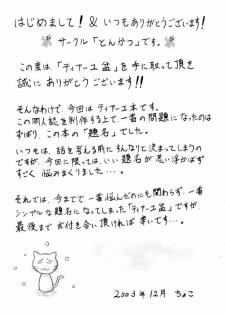 はじめまして! & いつもありがとうございます!
サークル「とんかつ」です。
この度は「ティアーユ盆」を手に取って頂き
誠にありがとうございます!!
そんなわけで、今回はティアーユ本です。
この同人誌を制作する上で、一番の問題になったのは
ずばり、この本の「題名」でした。
いつもは、話を考える前にすんなりと決まってしまうの
ですが、今回に限っては、いい題名が思い浮かばず
すごく悩みまくりました…。
それでは、今までで一番悩んだのにも関わらず、一番
シンプルな題名になってしまった「ティアーユ盆」ですが、
最後までお付き合い頂ければ幸いです…。
2003年12月 ちょこ